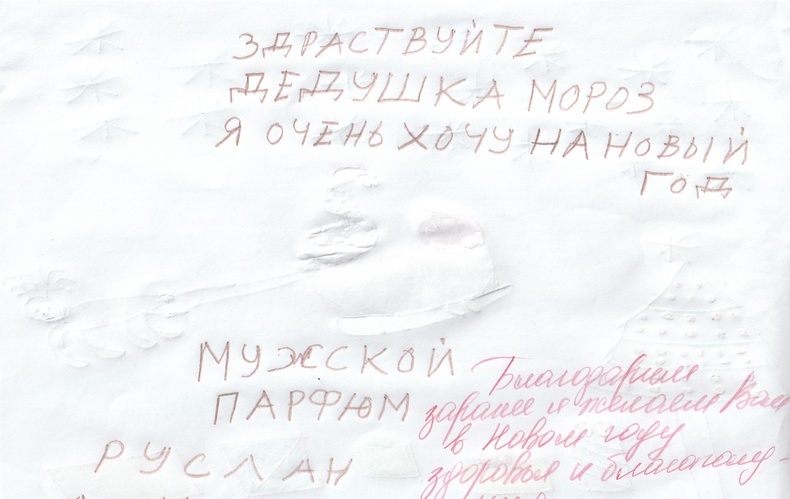 ЗДРАСТВУЙТЕ
ДЕДУШКА МОРОЗ
Я ОЧЕНЬ ХОЧУ НА НОВЫЙ
ГОД
МУЖСКОЙ
ПАРФЮМ
РУСЛАН
Благодарим
заранее и желаем Вам
в Новом году
здоровья и благополу-